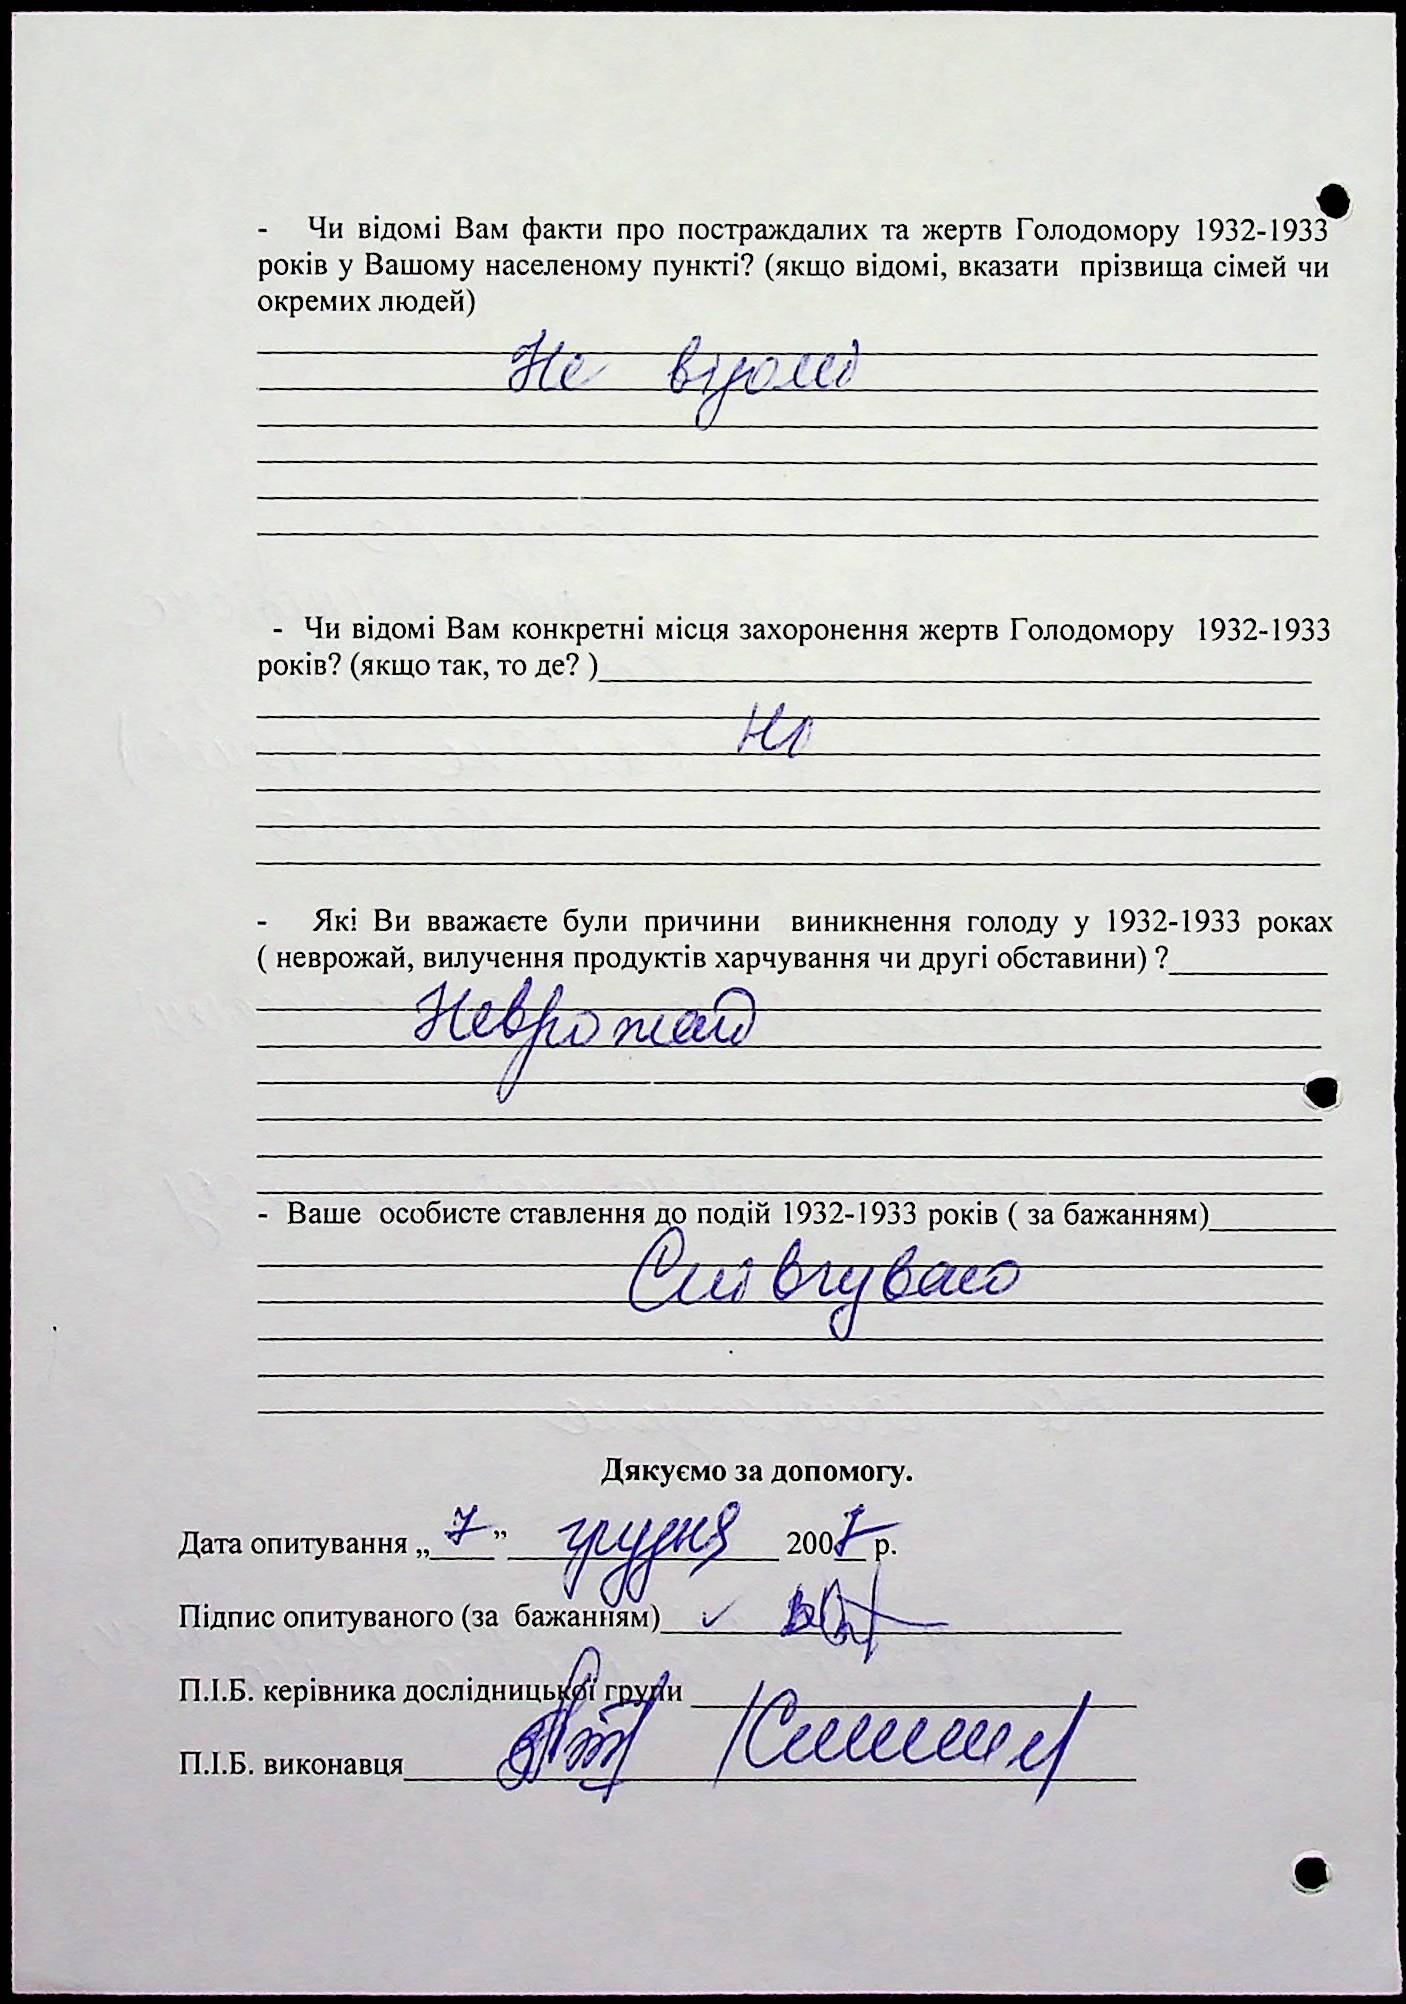 - Чи відомі Вам факти про постраждалих та жертв Голодомору 1932-1933
років у Вашому населеному пункті? (якщо відомі, вказати прізвища сімей чи
окремих людей)
Не відомі
- Чи відомі Вам конкретні місця захоронення жертв Голодомору 1932-1933
років? (якщо так, то де? )
Ні
- Які Ви вважаєте були причини виникнення голоду у 1932-1933 роках
( неврожай, вилучення продуктів харчування чи другі обставини) ?
Неврожай
- Ваше особисте ставлення до подій 1932-1933 років ( за бажанням)
Співчуваю
Дякуємо за допомогу.
Дата опитування „ 7 ” грудня 2007 р.
Підпис опитуваного (за бажанням)
П.І.Б. керівника дослідницької групи
П.І.Б. виконавця